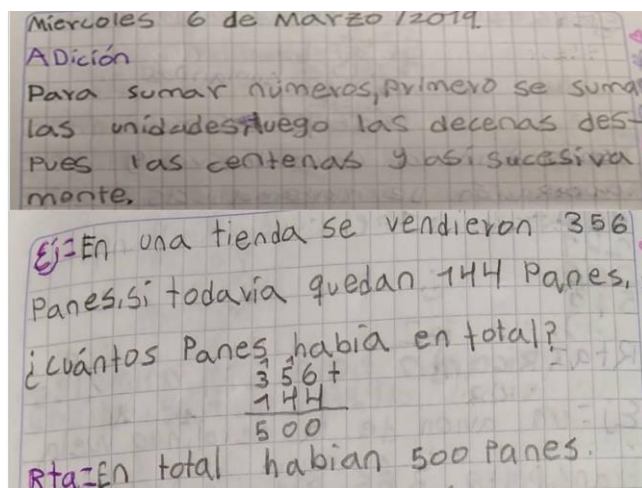 Miercoles 6 de Marzo / 2019.
ADición
Para sumar números, primero se suma
las unidades, luego las decenas des-
pues las centenas y asi sucesiva
mente.
Ej= En una tienda se vendieron 356
Panes, si todavía quedan 144 Panes,
¿cuántos Panes había en total?
1 1
356+
144
500
Rta= En total habian 500 Panes.